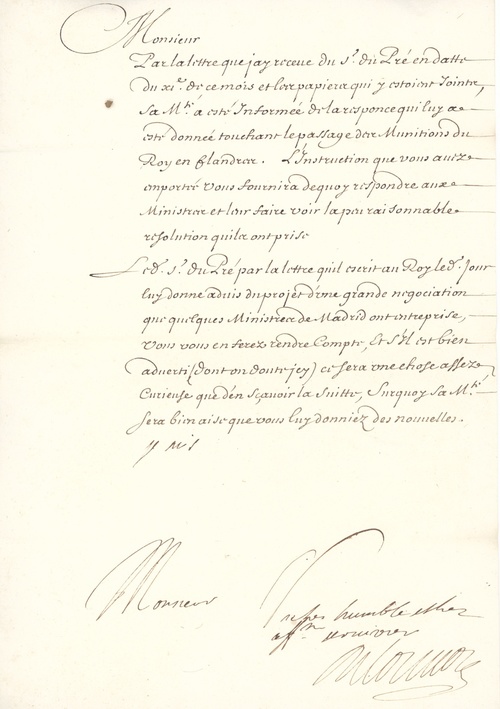 Monsieur
Par la lettre que jay receue du s.r du Pré en datte
du xi.e de ce mois et les papiers qui y estoient Joints,
sa M.té a esté Informée de la responce qui luy a
esté donnée touchant le passage des Munitions du
Roy en flandres. L'Instruction que vous auez
emporté vous fournira dequoy respondre aux
Ministres et leur faire voir la peu raisonnable
resolution quils ont prise
Led. s.r du Pré par la lettre quil escrit au Roy led. Jour
luy donne aduis du projet d'vne grande negociation
que quelques Ministres de Madrid ont entreprise,
Vous vous en ferez rendre Compte, Et s'Il est bien
aduerti (dont on doute jcy) ce sera vne chose assez
Curieuse que d'en sçauoir la suitte, Surquoy sa M.té
sera bien aise que vous luy donniez des nouelles.
Monsieur
humble et